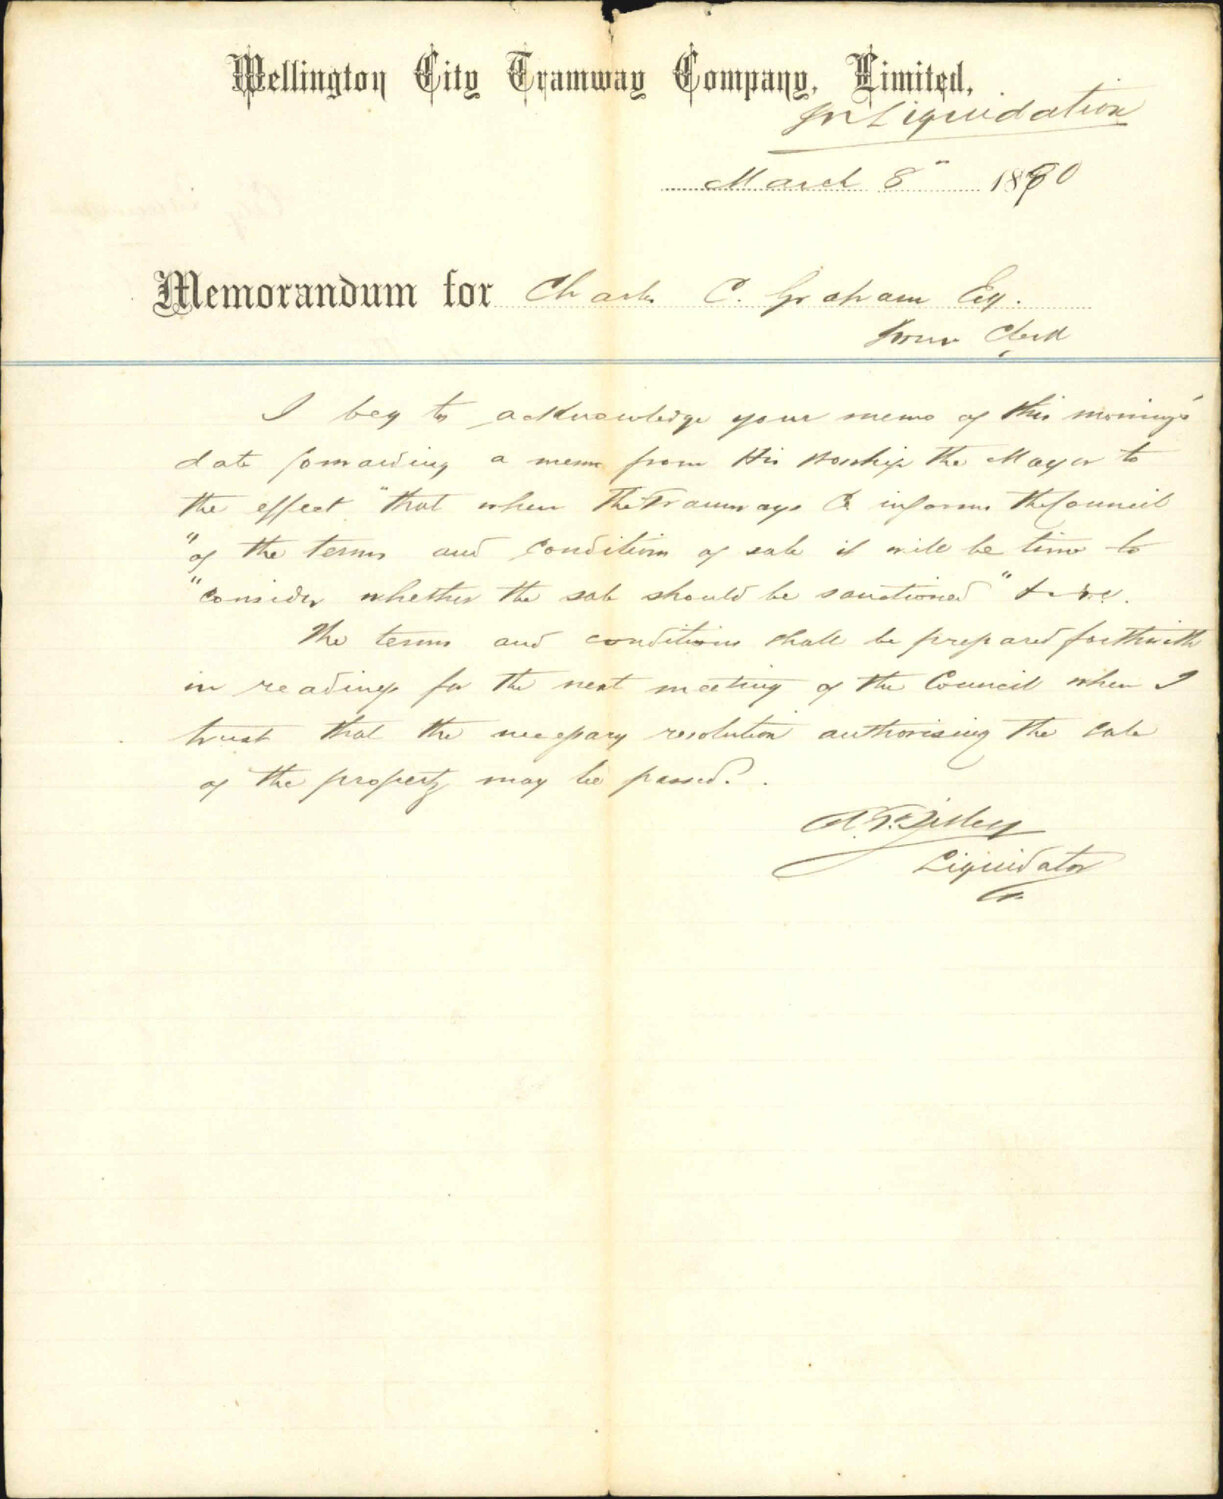 Wellington City Tramway Company, Limited,
In Liquidation
March 8" 1880
Memorandum for Charles C. Graham Esq.
Town Clerk
I beg to acknowledge your memo of this morning's
date forwarding a memo from His Worship the Mayor to
the effect "that when The Tramways Co informs the Council
"of the terms and conditions of sale it will be time to
"consider whether the sale should be sanctioned" &c &c.
The terms and conditions shall be prepared forthwith
in readiness for the next meeting of the Council when I
trust that the necessary resolution authorising the sale
of the property may be passed.
Liquidator